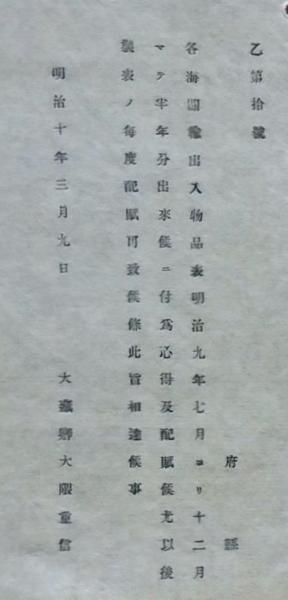 乙第拾號
府縣
各海關輸出入物品表明治九年七月ヨリ十二月
マテ半年分出來候ニ付爲心得及配賦候尤以後
製表ノ每度配賦可致候條此旨相達候事
明治十年三月九日　大藏卿大隈重信